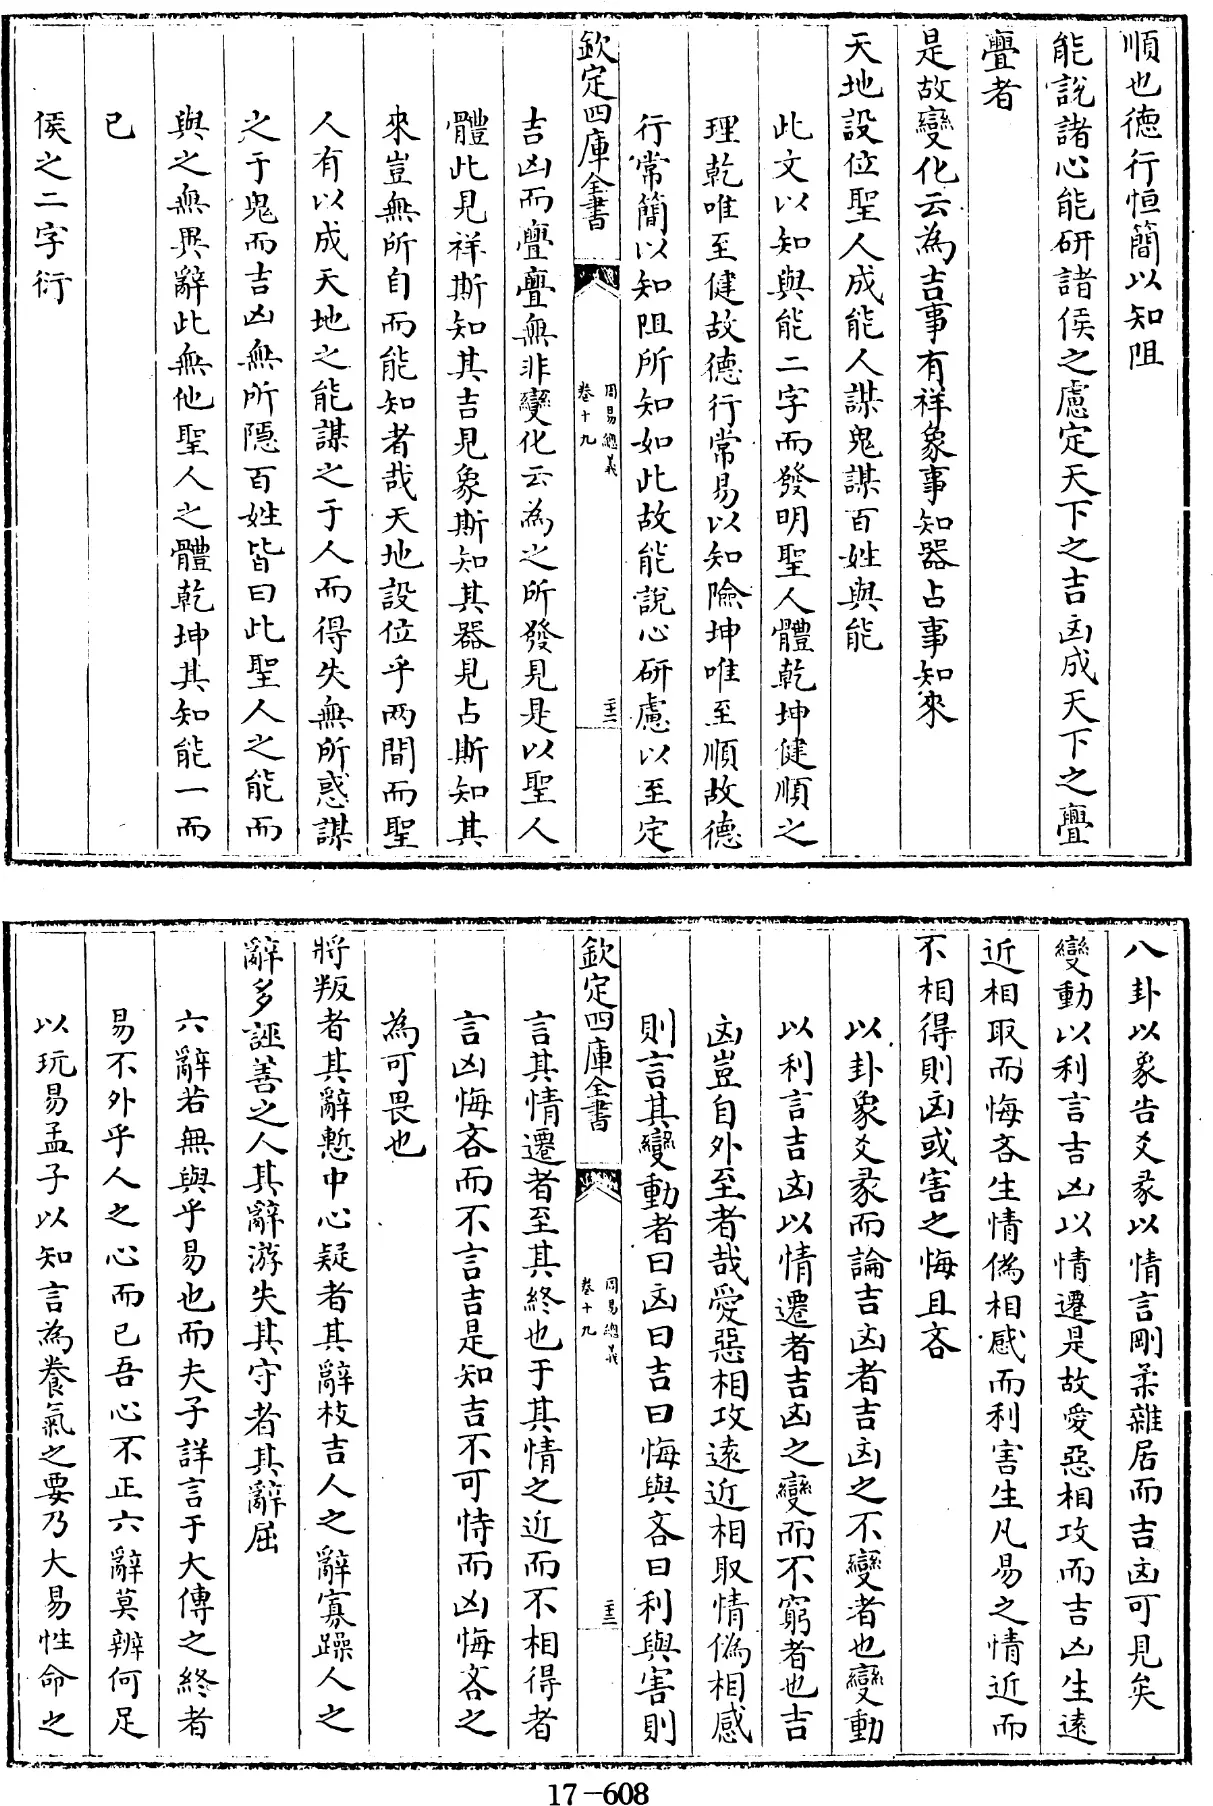 順也德行恒簡以知阻
能說諸心能研諸侯之慮定天下之吉凶成天下之亹
亹者
是故變化云為吉事有祥象事知器占事知來
天地設位聖人成能人謀鬼謀百姓與能
此文以知與能二字而發明聖人體乾坤健順之
理乾唯至健故德行常易以知險坤唯至順故德
行常簡以知阻所知如此故能說心研慮以至定
欽定四庫全書
周易總義
卷十九
二十二
吉凶而亹亹無非變化云為之所發見是以聖人
體此見祥斯知其吉見象斯知其器見占斯知其
來豈無所自而能知者哉天地設位乎两間而聖
人有以成天地之能謀之于人而得失無所惑謀
之于鬼而吉凶無所隱百姓皆曰此聖人之能而
與之無異辭此無他聖人之體乾坤其知能一而
已
侯之二字衍
八卦以象告爻彖以情言剛柔雜居而吉凶可見矣
變動以利言吉凶以情遷是故愛惡相攻而吉凶生遠
近相取而悔吝生情偽相感而利害生凡易之情近而
不相得則凶或害之悔且吝
以卦象爻彖而論吉凶者吉凶之不變者也變動
以利言吉凶以情遷者吉凶之變而不窮者也吉
凶豈自外至者哉愛惡相攻遠近相取情偽相感
則言其變動者曰凶曰吉曰悔與吝曰利與害則
欽定四庫全書
周易總義
卷十九
二十三
言其情遷者至其終也于其情之近而不相得者
言凶悔吝而不言吉是知吉不可恃而凶悔吝之
為可畏也
將叛者其辭慙中心疑者其辭枝吉人之辭寡躁人之
辭多誣善之人其辭游失其守者其辭屈
六辭若無與乎易也而夫子詳言于大傳之終者
易不外乎人之心而已吾心不正六辭莫辨何足
以玩易孟子以知言為養氣之要乃大易性命之
17-608